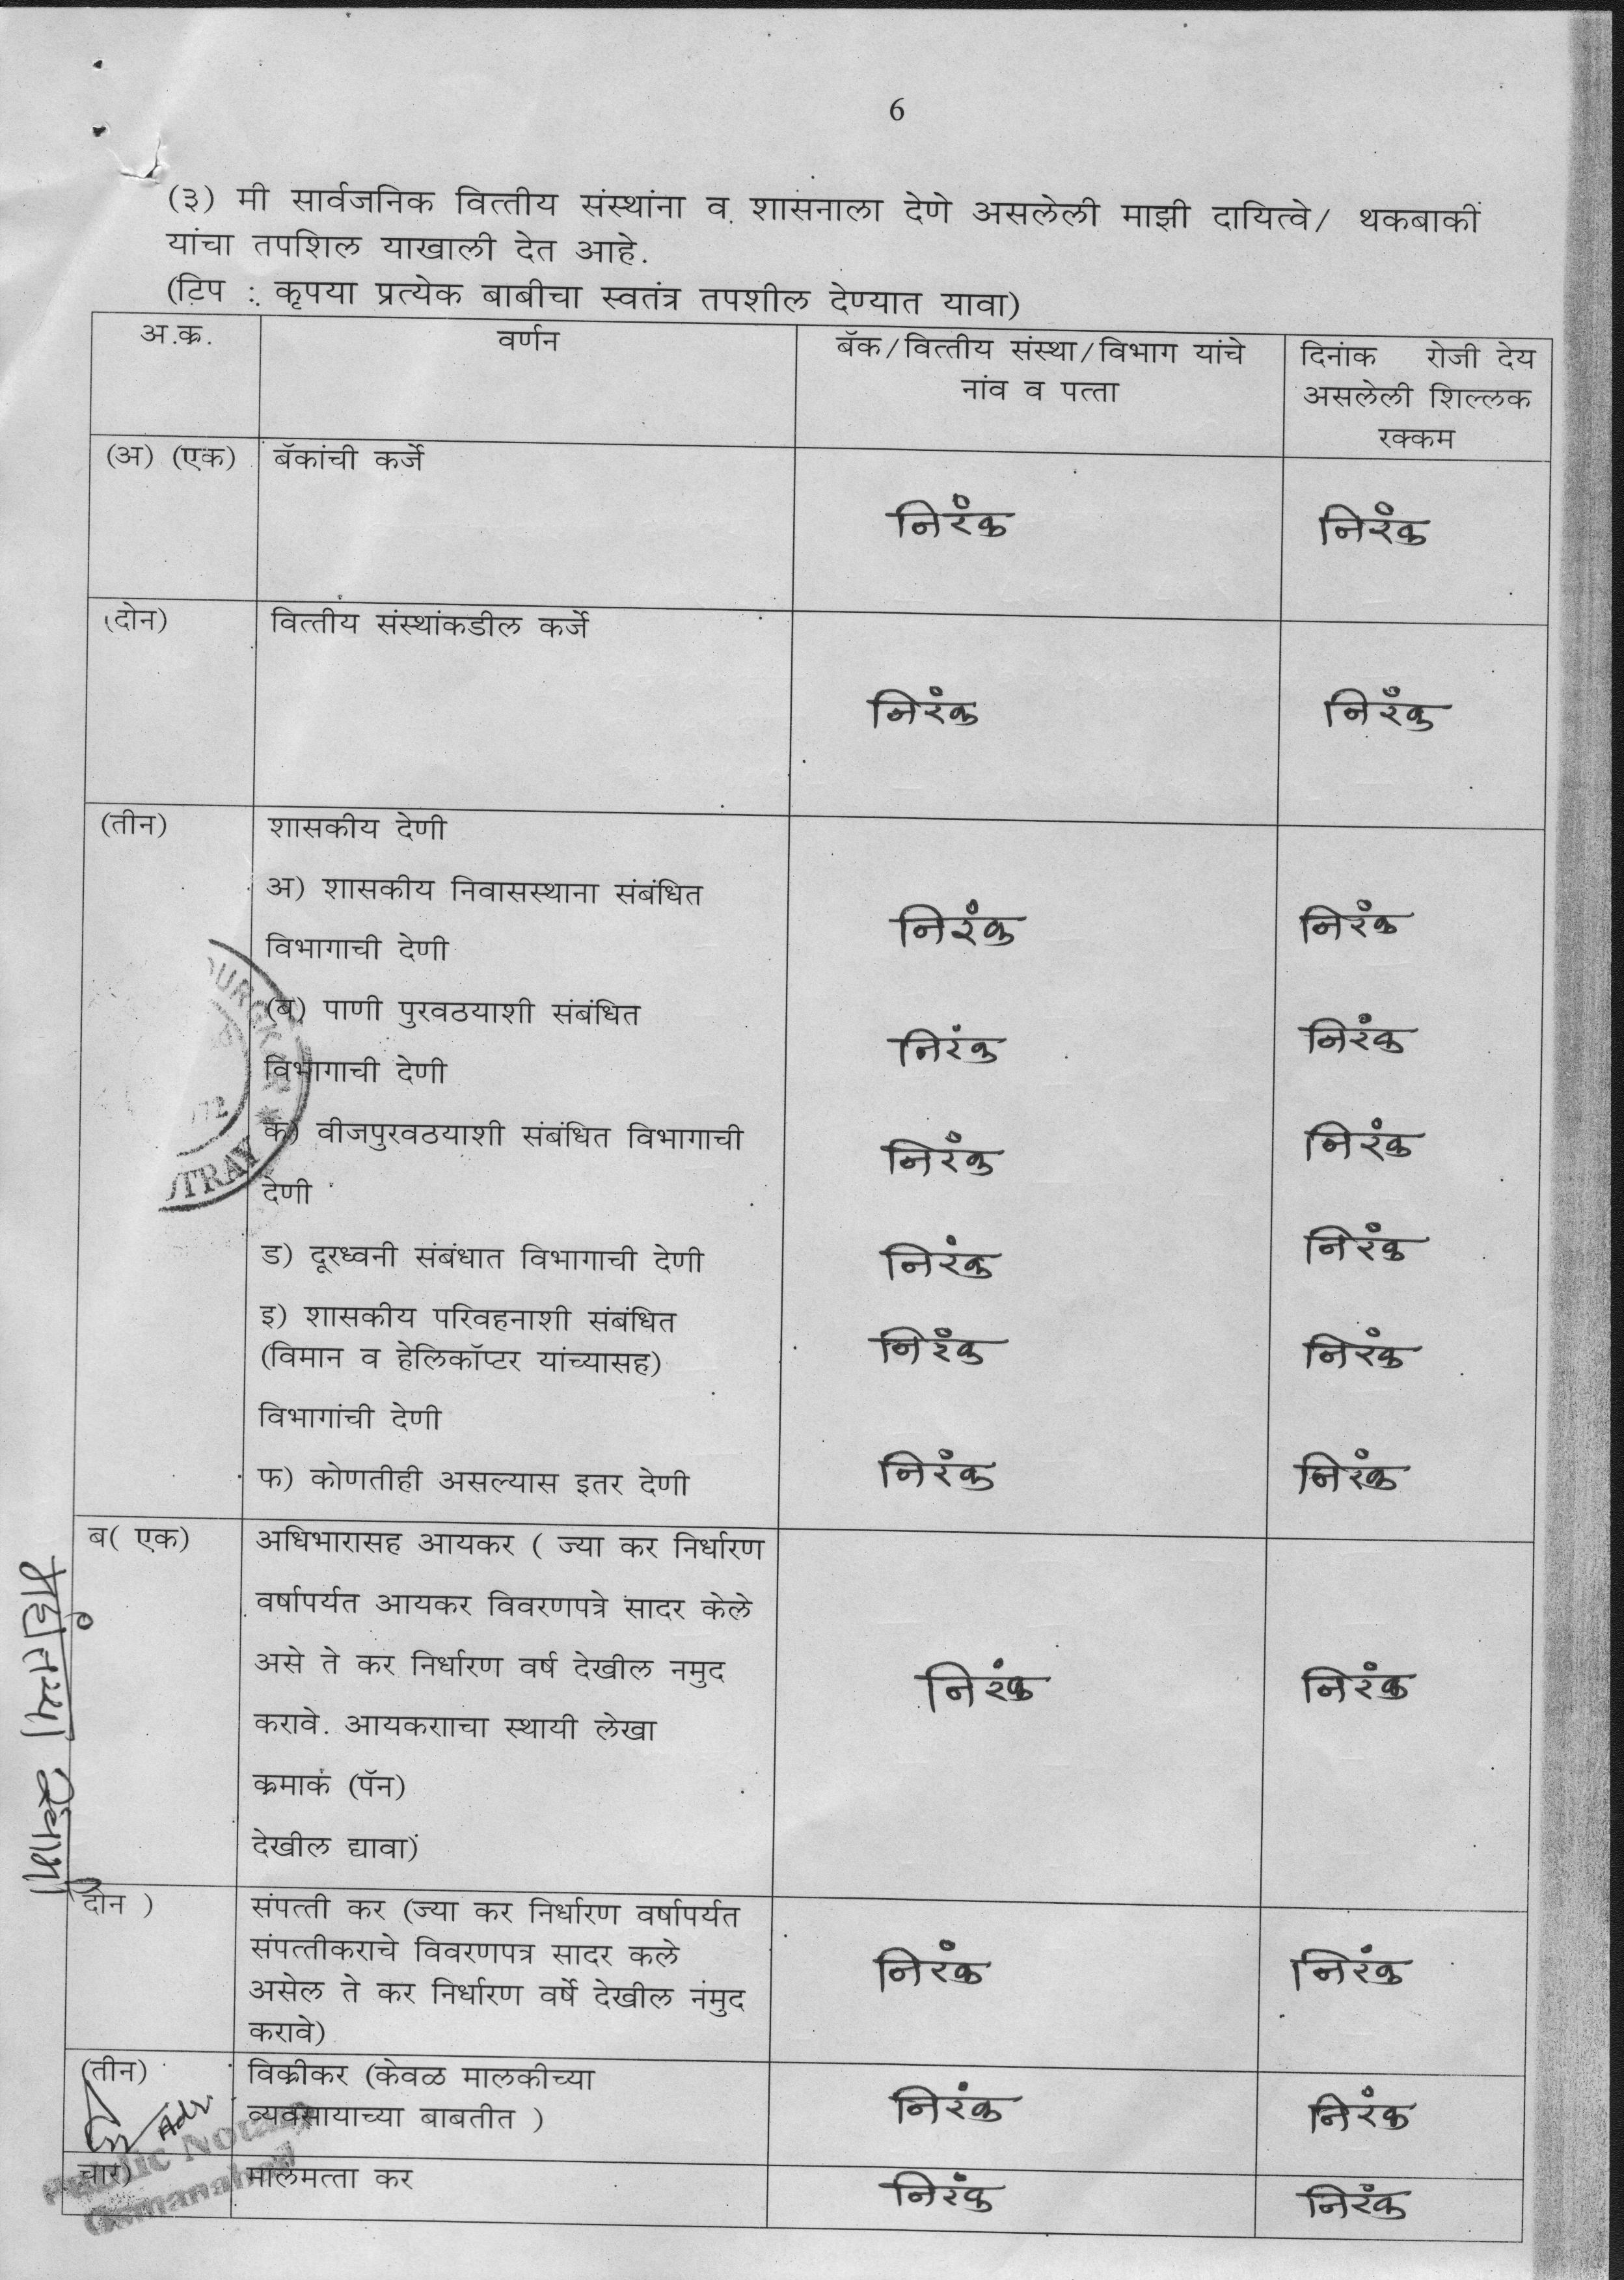 6
(३) मी सार्वजनिक वित्तीय संस्थांना व शासनाला देणे असलेली माझी दायित्वे/ थकबाकीं
यांचा तपशिल याखाली देत आहे.
(टिप : कृपया प्रत्येक बाबीचा स्वतंत्र तपशील देण्यात यावा)
अ.क्र. वर्णन बॅक/वित्तीय संस्था/विभाग यांचे दिनांक रोजी देय
नांव व पत्ता असलेली शिल्लक
रक्कम
(अ) (एक) बॅकांची कर्जे
निरंक निरंक
(दोन) वित्तीय संस्थांकडील कर्जे
निरंक निरंक
(तीन) शासकीय देणी
अ) शासकीय निवासस्थाना संबंधित
निरंक निरंक
विभागाची देणी
(ब) पाणी पुरवठयाशी संबंधित
निरंक निरंक
विभागाची देणी
क) वीजपुरवठयाशी संबंधित विभागाची
निरंक निरंक
देणी
ड) दूरध्वनी संबंधात विभागाची देणी निरंक निरंक
इ) शासकीय परिवहनाशी संबंधित
(विमान व हेलिकॉप्टर यांच्यासह) निरंक निरंक
विभागांची देणी
फ) कोणतीही असल्यास इतर देणी निरंक निरंक
ब( एक) अधिभारासह आयकर ( ज्या कर निर्धारण
वर्षापर्यत आयकर विवरणपत्रे सादर केले
असे ते कर निर्धारण वर्ष देखील नमुद निरंक निरंक
करावे. आयकरााचा स्थायी लेखा
क्रमाकं (पॅन)
देखील द्यावा)
दोन ) संपत्ती कर (ज्या कर निर्धारण वर्षापर्यत
संपत्तीकराचे विवरणपत्र सादर कले निरंक निरंक
असेल ते कर निर्धारण वर्षे देखील नंमुद
करावे)
(तीन) विक्रीकर (केवळ मालकीच्या
व्यवसायाच्या बाबतीत ) निरंक निरंक
चार) मालमत्ता कर निरंक निरंक
Adv.
Public Notary
Osmanabad